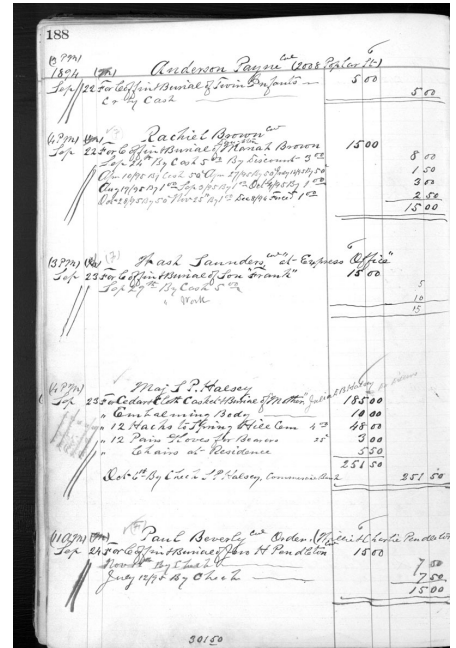 188
(3 PM)
1894 Anderson Payne Col (2008 Poplar St)
Sep 22 For Coffin & Burial of Twin Infants 5 00
Cr By Cash 5 00
(4 PM)
Rachiel Brown Col
Sep 22 For Coffin & Burial of Mariah Brown 15 00
Sep 24th By Cash 5 00 By Discount 3 00 8 00
Apr 10/95 By Cash 50 Apr 27/95 By 50 By 50 1 50
Aug 17/95 By 1 00 Sep 5/95 By 1 00 Oct By 1 00 3 00
Oct 26/95 By 50 Nov 25 By 1 00 1 00 2 50
15 00
(3 PM) (7)
Wash Saunders Col "at Express Office"
Sep 23 For Coffin & Burial of Son "Frank" 15 00
Sep 27th By Cash 5 00 5
" Work 10
15
(4 PM)
Maj S P Halsey
Sep 23 For Cedar Cloth Casket & Burial of Mother Julia D B Halsey 185 00
" Embalming Body 10 00
" 12 Hacks to Spring Hill Cem 4 00 48 00
" 12 Pairs Gloves for Bearers 25 3 00
" Chairs at Residence 5 50
251 50
Oct 6th By Check S P Halsey, Commercial Bank 251 50
(11 AM)
Paul Beverly Col Order (Willie & Charlie Pendleton
Sep 24 For Coffin & Burial of Jno H Pendleton 15 00
Nov By Cash 7 50
July 12/95 By Check 7 50
15 00
301 50